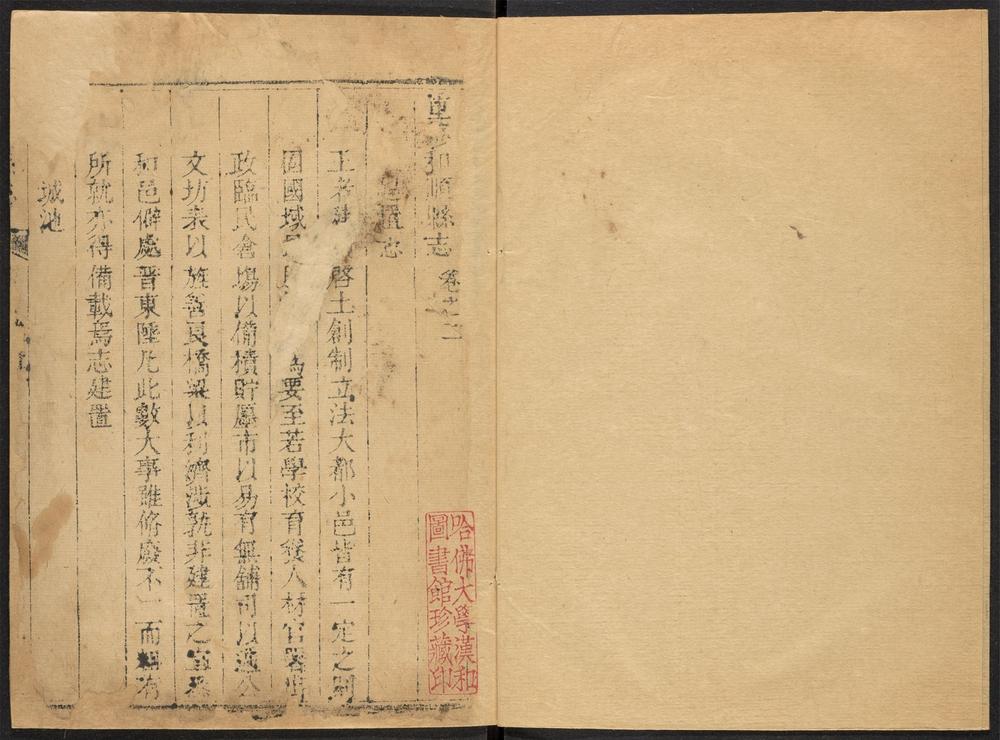 重修和順縣志 卷之二
建置志
王者建 啓土創制立法大都小邑皆有一定之制
固國域民 為要至若學校育賢人材官署出
政臨民倉場以備積貯廛市以易有無舖司以遞公
文坊表以旌善良橋梁以利濟涉孰非建置之宜
和邑僻處晋東陲凡此數大事雖脩廢不一而粗有
所就亦得備載焉志建置
城池
哈佛大學漢和
圖書館珍藏印